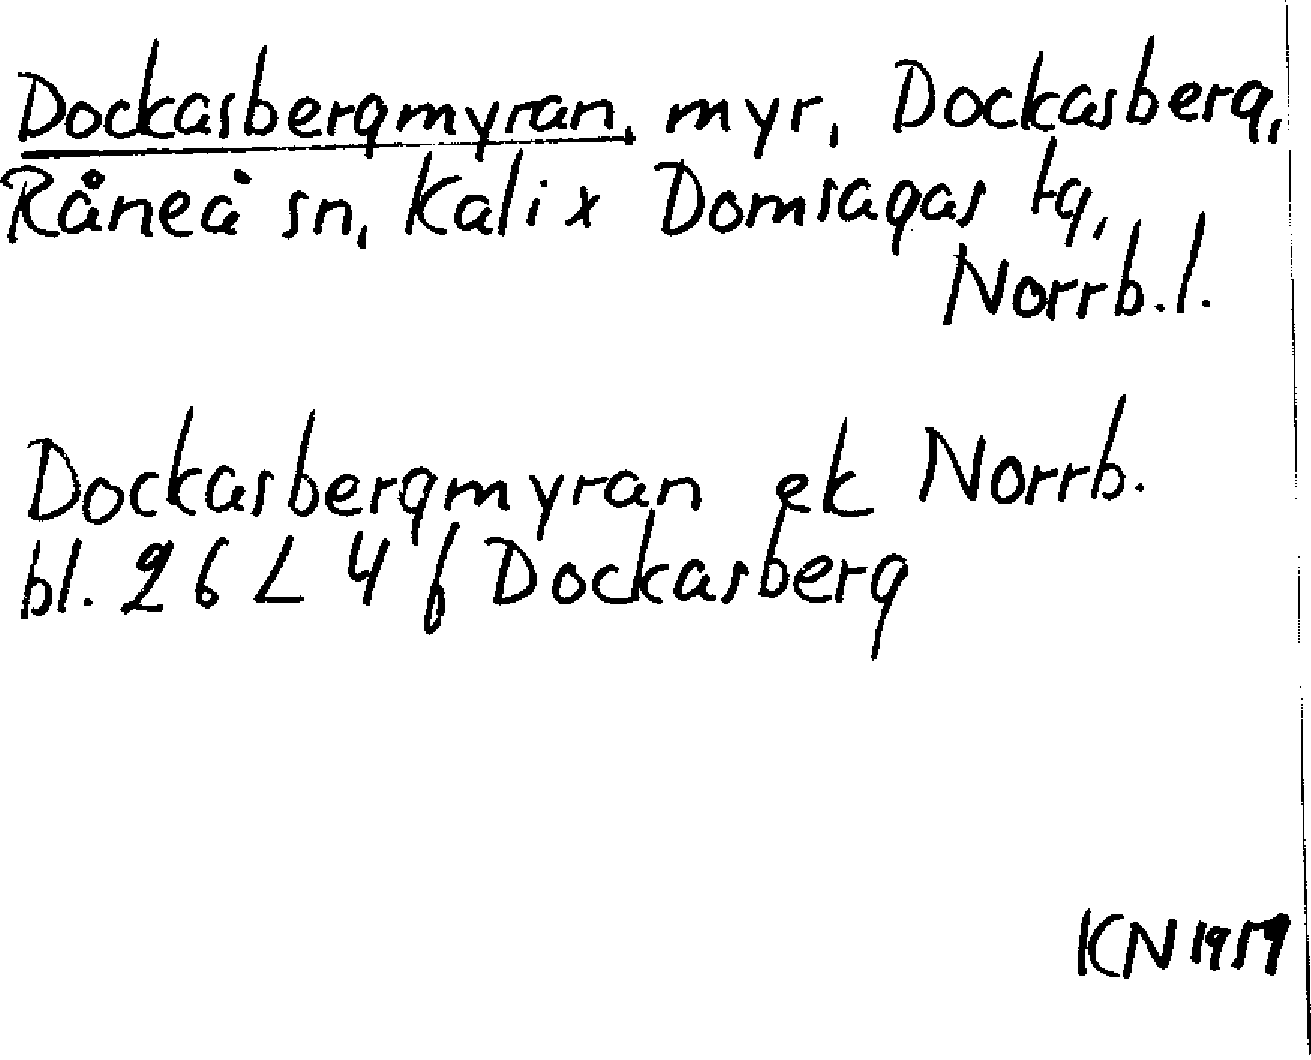 Dockasbergmyran, myr, Dockasberg,
Råneå sn, Kalix Domsagas tg,
Norrb. l.
Dockasbergmyran ek Norrb.
bl. 26 L 4 f Dockasberg
KN 1959